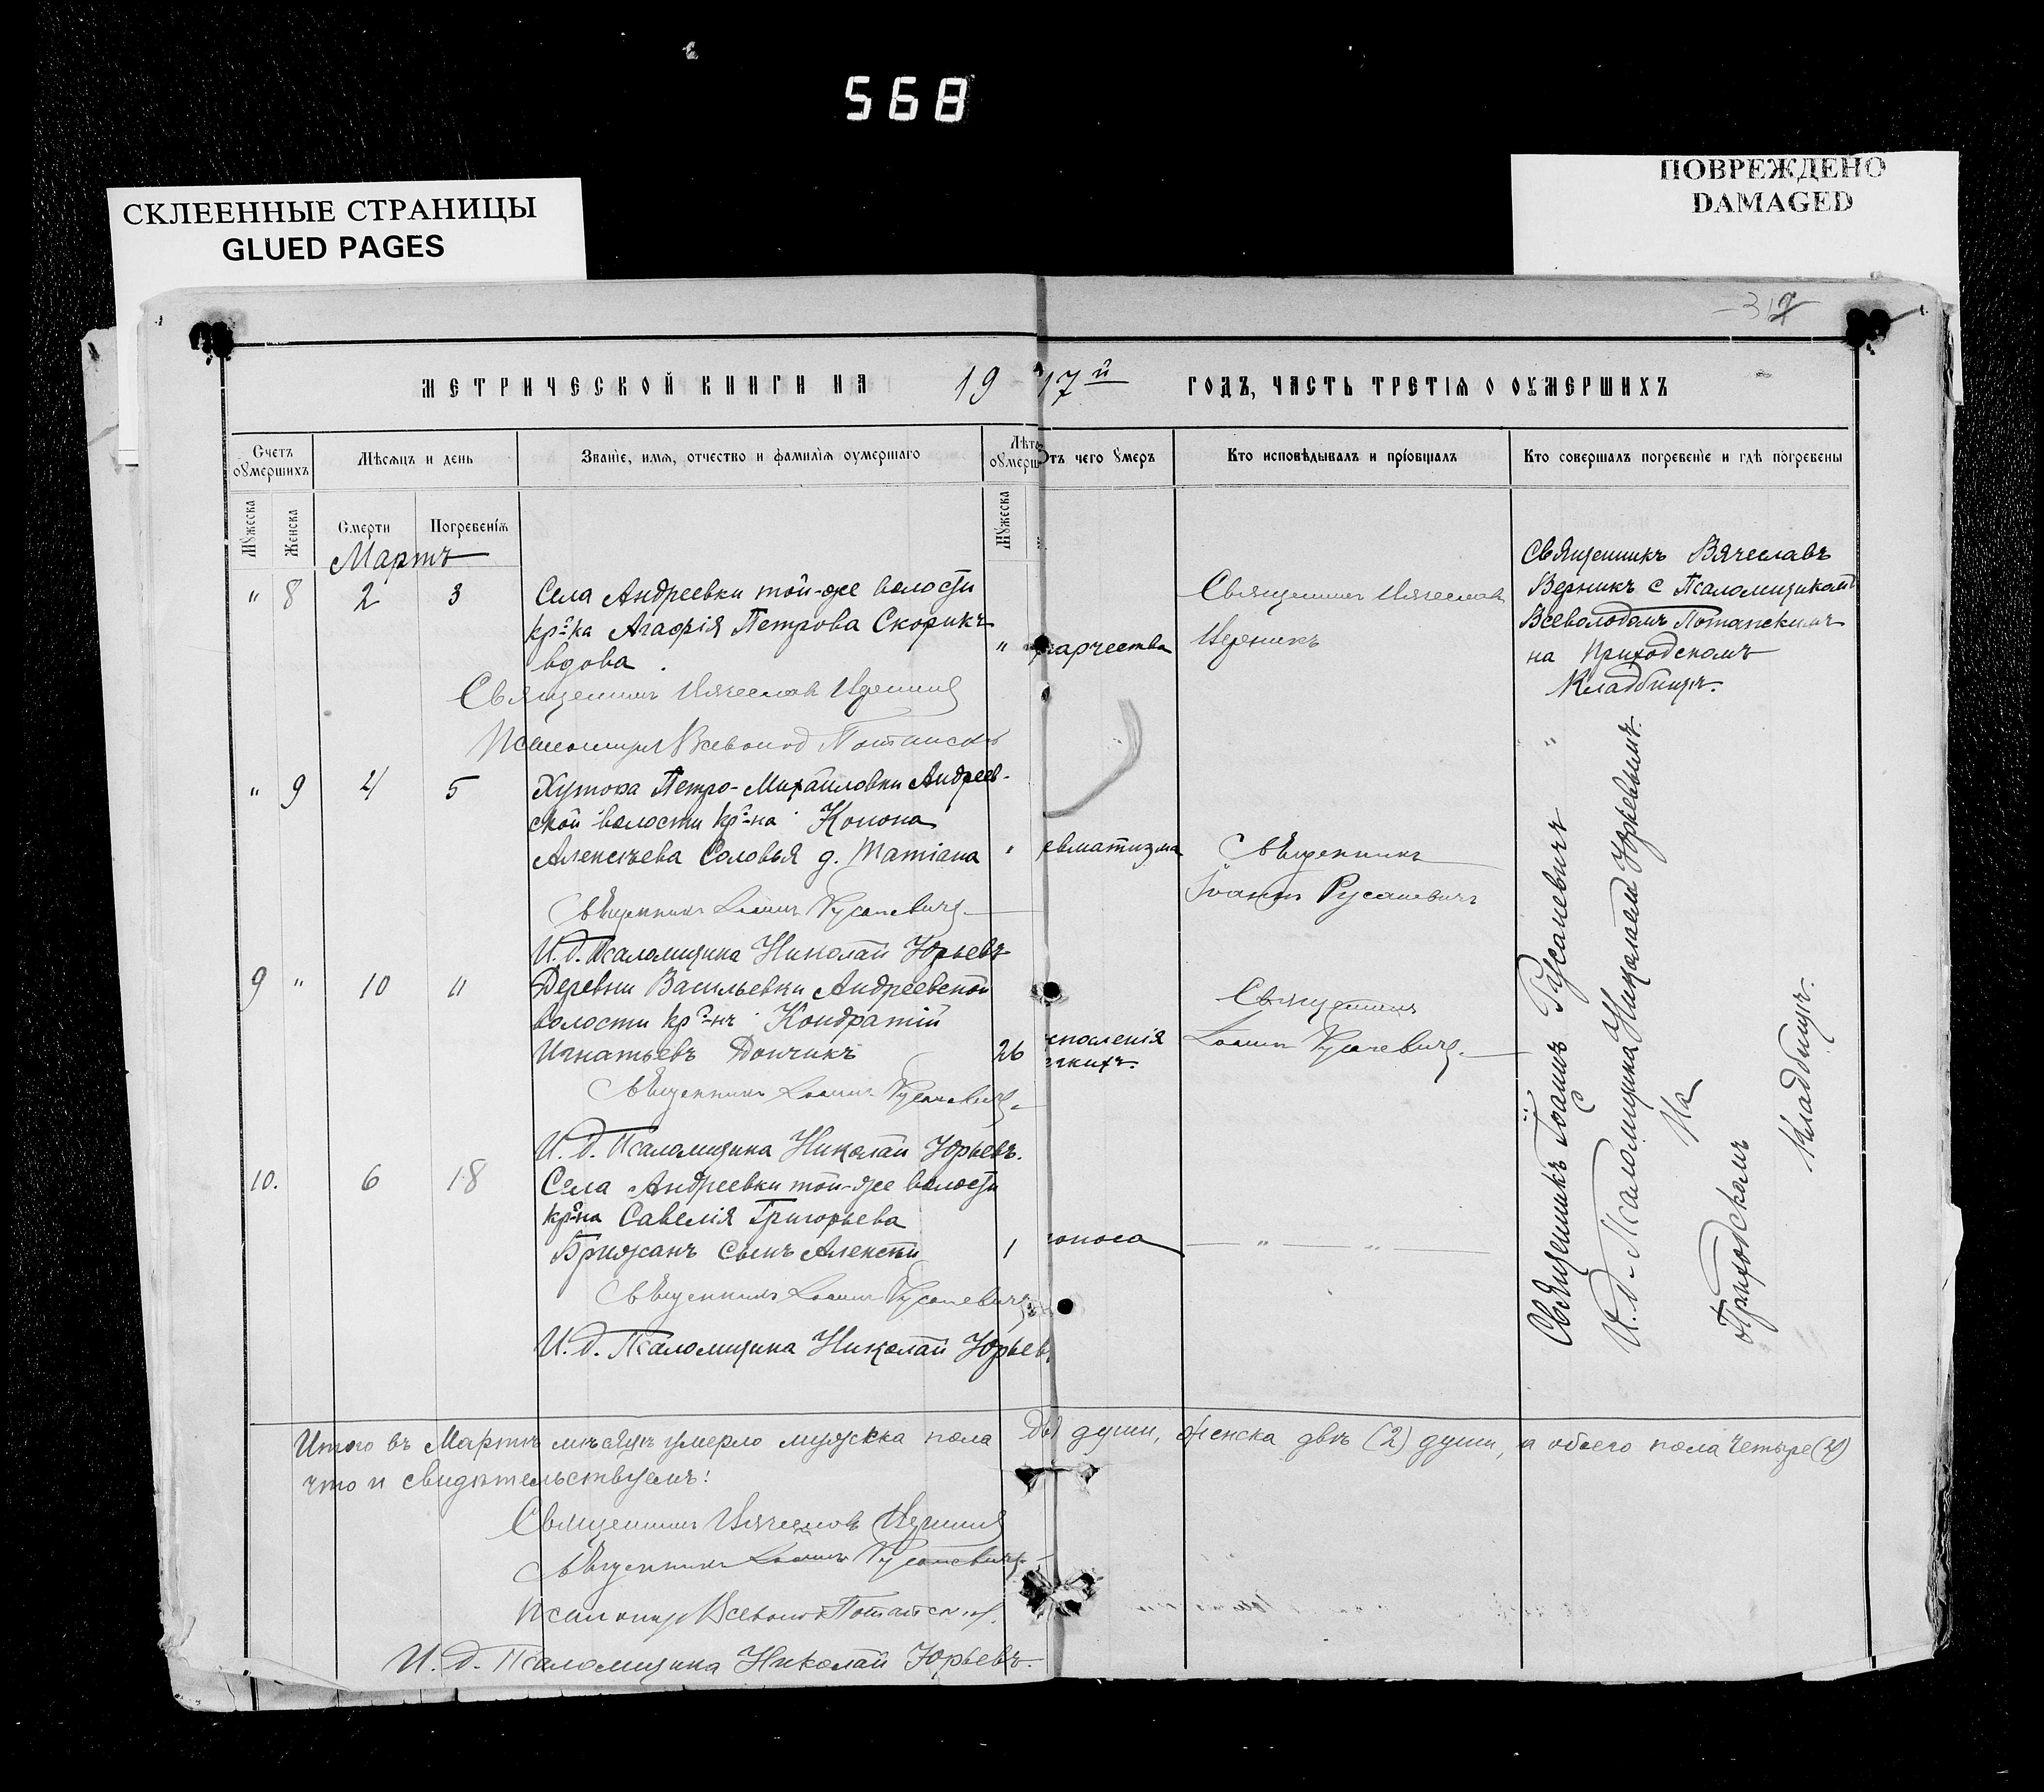 568
СКЛЕЕННЫЕ СТРАНИЦЫ
GLUED PAGES
ПОВРЕЖДЕНО
DAMAGED
МЕТРИЧЕСКОЙ КНИГИ НА 19 17й ГОДЪ, ЧАСТЬ ТРЕТІѦ О ОУМЕРШИХЪ
Счетъ оумершихъ
Мѣсяцъ и день
Званіе, имѧ, отчество и фамилія оумершаго
Лѣта оумерш
Отъ чего умеръ
Кто исповѣдывалъ и пріобщалъ
Кто совершалъ погребеніе и гдѣ погребены
Мужеска
Женска
Смерти
Погребеніѧ
Мужеска
Мартъ
" 8 2 3
Села Андреевки той-же волости
кр-ка Агафія Петрова Скорикъ
вдова.
"
тарчества
Священникъ Вячеслав
Верникъ
Священникъ Вячеславъ
Верникъ с Псаломщикомъ
Всеволодомъ Потапскимъ
на Приходскомъ
Кладбищѣ.
Священникъ Вячеслав Верникъ
Псаломщик Всеволод Потапскій
" 9 4 5
Хутора Петро-Михайловки Андреев-
ской волости кр-на Конона
Алексѣева Соловья д. Татіана
"
евматизма
Священникъ
Іоаннъ Русаневичъ
Священникъ Іоаннъ Русаневичъ
И. д. Псаломщика Николай Юрьевъ
9 " 10 11
Деревни Васильевки Андреевской
волости кр-нъ Кондратій
Игнатьевъ Дончикъ
26
споленія
гкихъ.
Священникъ
Іоаннъ Русаневичъ
Священникъ Іоаннъ Русаневичъ
И. д. Псаломщика Николай Юрьевъ.
10. 6 18
Села Андреевки той-же волости
кр-на Савелія Григорьева
Брижанъ сынъ Алексѣй
1
оноса
— " — "
Священникъ Іоаннъ Русаневичъ
И. д. Псаломщика Николай Юрьев
"
Священникъ Іоаннъ Русаневичъ
с
И. д. Псаломщика Николаемъ Юрьевымъ.
На
Приходскомъ
Кладбищѣ.
Итого въ Мартѣ мѣсяцѣ умерло мужеска пола два души, женска двѣ (2) души, а обоего пола четыре (4)
что и свидѣтельствуемъ:
Священникъ Вячеславъ Верникъ
Священникъ Іоаннъ Русаневичъ
Псаломщ Всеволод Потапскій.
И. д. Псаломщика Николай Юрьевъ.